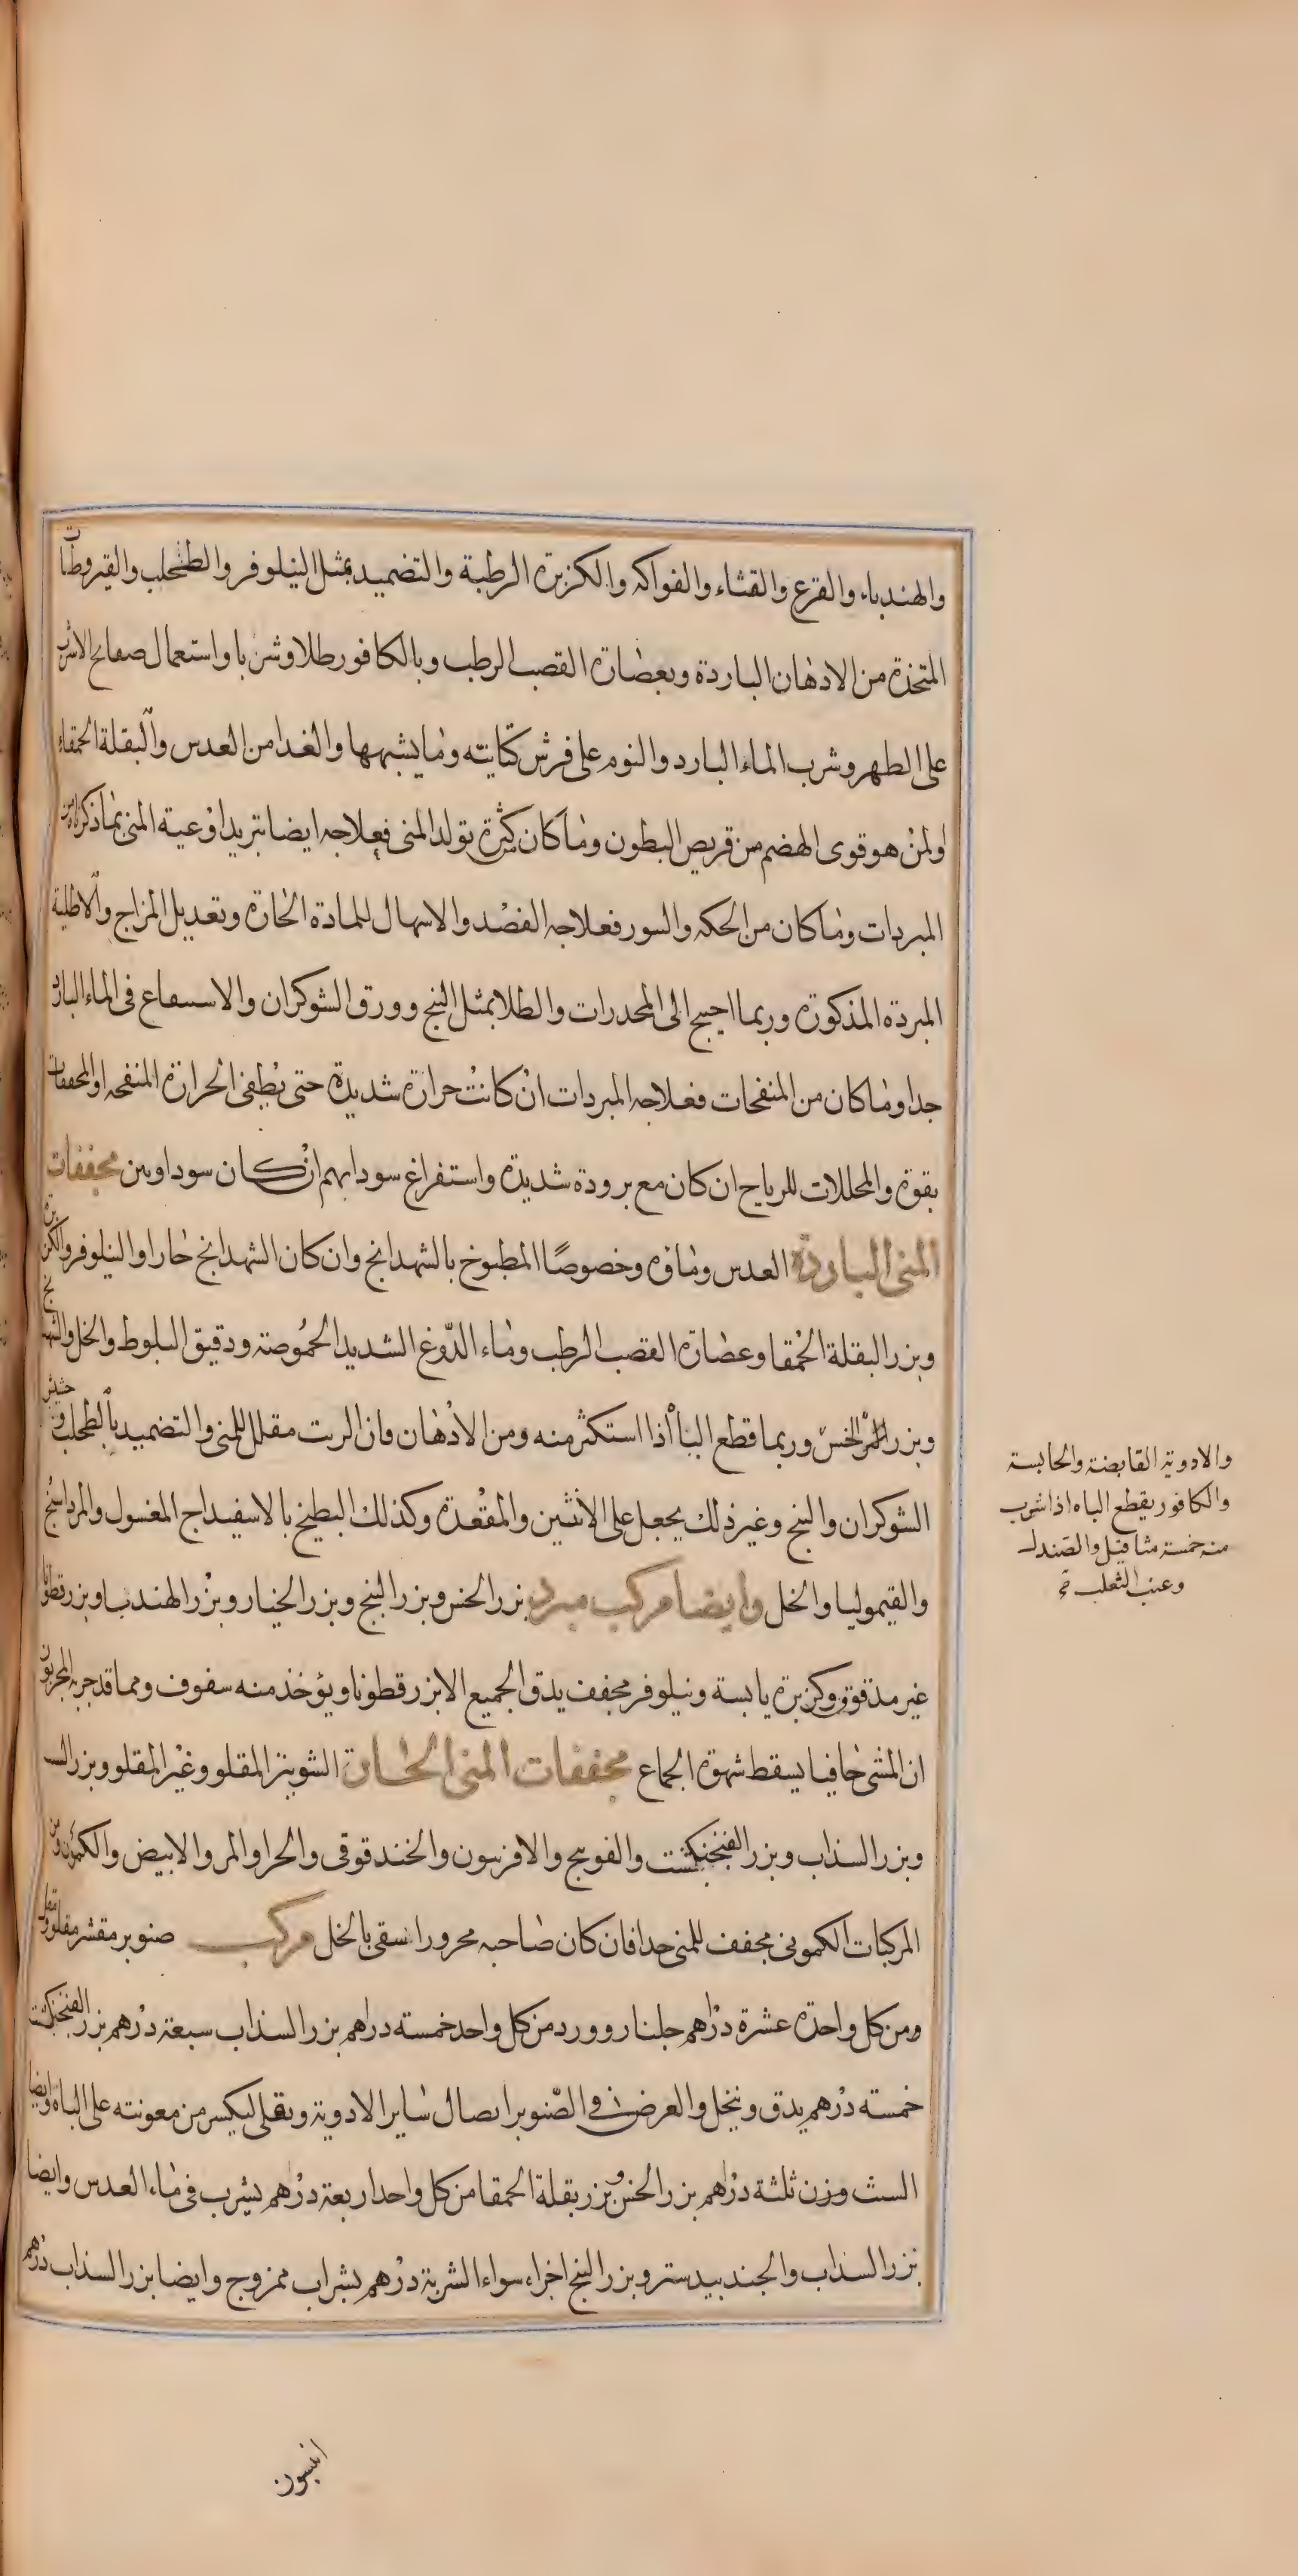 والهندباء والقرع والقثاء والفواكه والكزبرة الرطبة والتضميد بمثل النيلوفر والطحلب والقيروطات
المتخذة من الادهان الباردة وبعصارة القصب الرطب وبالكافور طلا وشربا واستعمال صفائح الاسرب
على الظهر وشرب الماء البارد والنوم على فرش كتانيته وما يشبهها والغدا من العدس والبقلة الحمقاء
ولمن هو قوى الهضم من قريص البطون وما كان كثرة تولد المنى فعلاجه ايضا تبريد اوعية المنى بما ذكرناه من
المبردات وما كان من الحكه والبثور فعلاجه الفصد والاسهال للمادة الحارة وتعديل المزاج والاطلية
المبردة المذكورة وربما احتيج الى المخدرات والطلا بمثل البنج وورق الشوكران والاستنقاع فى الماء البارد
جدا وما كان من المنفخات فعلاجه المبردات ان كانت حرارة شديدة حتى يطفئ الحرارة المنفخه او المجففات
بقوة والمحللات للرياح ان كان مع برودة شديدة واستفراغ سودايهم ان كان سوداويين مجففات
المنى الباردة العدس وماؤه وخصوصًا المطبوخ بالشهدانج وان كان الشهدانج حارا والنيلوفر والكزبرة
وبزر البقلة الحمقا وعصارة القصب الرطب وماء الدّوغ الشديد الحموصة ودقيق البلوط والخل والشهدانج
وبزر الخسّ وربما قطع الباه اذا استكثر منه ومن الادهان فان الزيت مقلل للمنى والتضميد بالطحلب وحشيش
الشوكران والبنج وغير ذلك يجعل على الانثيين والمقعدة وكذلك البطيخ بالاسفيداج المغسول والمرداسنج
والقيموليا والخل وايضا مركب مبرد بزر الخس وبزر البنج وبزر الخيار وبزر الهندبا وبزر قطونا
غير مدقوق وكزبرة يابسة ونيلوفر مجفف يدق الجميع الا بزر قطونا ويؤخذ منه سفوف ومما قد جربه المجربون
ان المشى حافيا يسقط شهوة الجماع مجففات المنى الحارة الشونيز المقلو وغير المقلو وبزر
وبزر السذاب وبزر الفنجنكشت والفوتنج والافربيون والحندقوقى والحرا والمر والابيض والكمون ومن
المركبات الكمونى مجفف للمنى جدا فان كان صاحبه محرورا سقى بالخل مركب صنوبر مقشر مقلو
ومن كل واحدة عشرة دراهم جلنار وورد من كل واحد خمسته دراهم بزر السذاب سبعة درهم بزر الفنجنكشت
خمسته درهم يدق وينخل والغرض فى الصّنوبر ايصال ساير الادوية ويقلى ليكسر من معونته على الباه وايضا
الشبث وزن ثلثة دراهم بزر الخس وبزر بقلة الحمقا من كل واحد اربعة درهم يشرب فى ماء العدس وايضا
بزر السذاب والجندبيدستر وبزر البنج اجزاء سواء الشربة درهم بشراب ممزوج وايضا بزر السذاب درهم
والادوية القابضة والحابسة
والكافور يقطع الباه اذا شرب
منه خمسة مثاقيل والصندل
وعنب الثعلب
انيسون